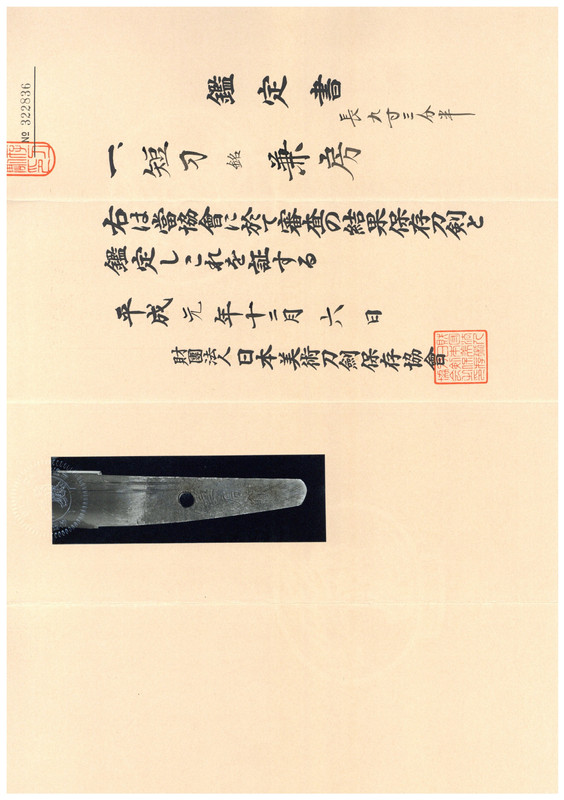 № 322836
鑑定書
長九寸三分半
一、短刀 銘 兼房
右は當協會に於て審査の結果保存刀剣と
鑑定しこれを証する
平成元年十二月六日
財團法人日本美術刀剣保存協會
兼房作